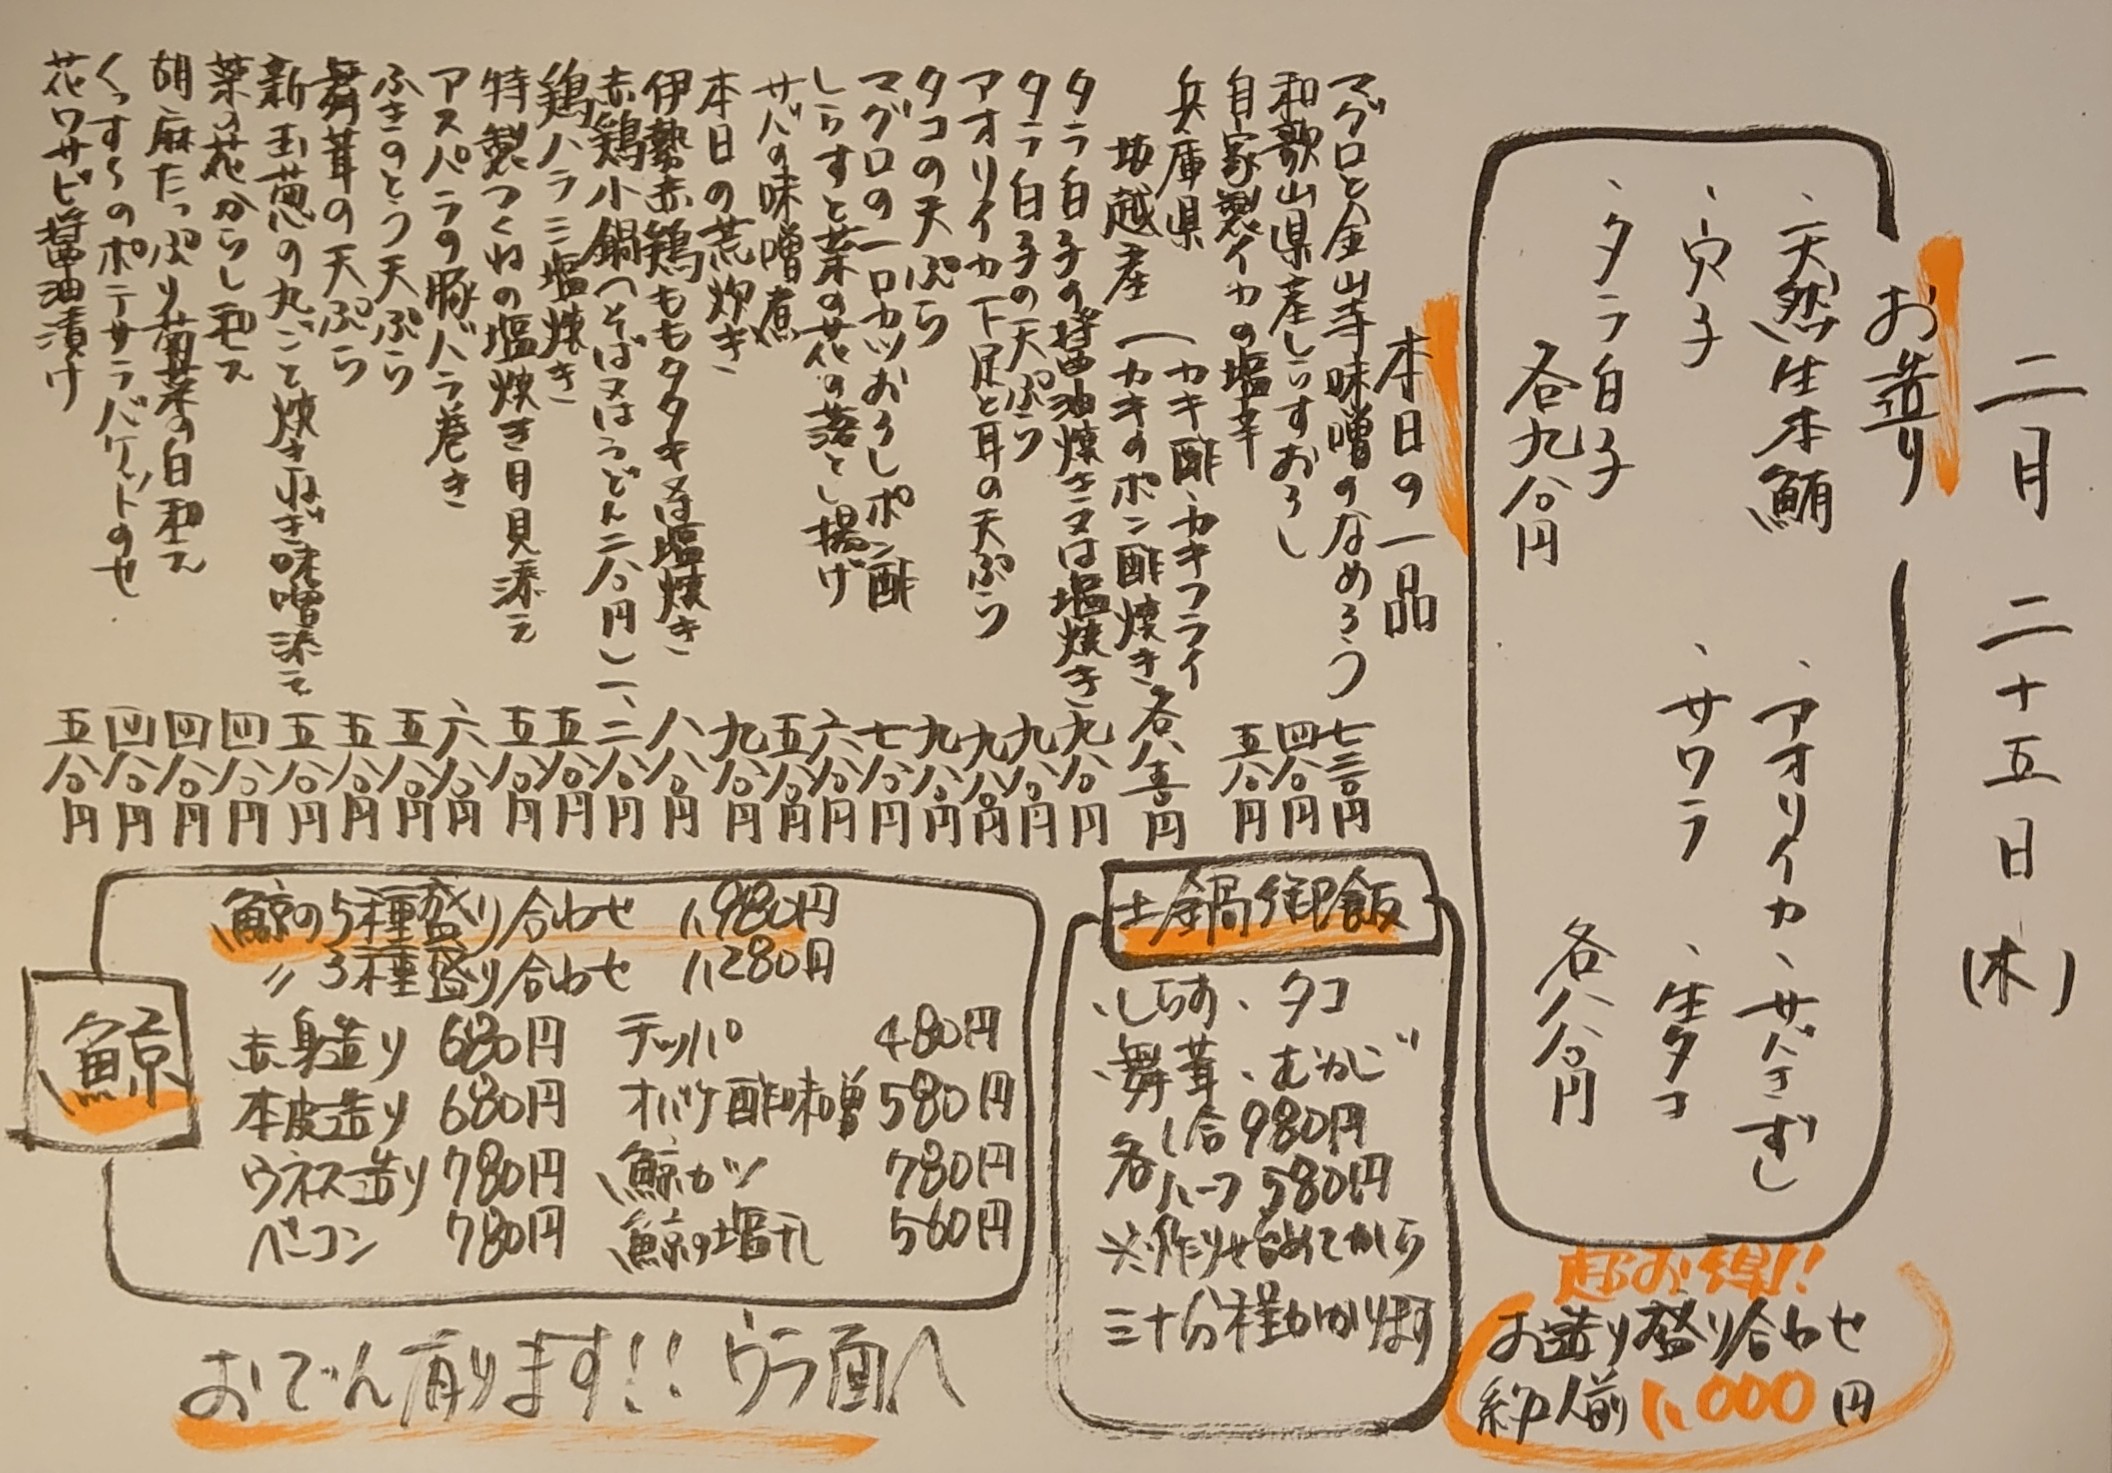 二月二十五日(木)
お造り
、天然生本鮪 、アオリイカ 、サバきずし
、穴子 、サワラ 、生タコ
、タラ白子
各九八〇円 各八八〇円
超お得!!
お造り盛り合わせ
約一人前 1,000円
本日の一品
マグロと金山寺味噌のなめろう 七三〇円
和歌山県産しらすおろし 四八〇円
自家製イカの塩辛 五八〇円
兵庫県 (カキ酢、カキフライ
坂越産 (カキのポン酢焼き 各八五〇円
タラ白子の醤油焼き又は塩焼き 九八〇円
タラ白子の天ぷら 九八〇円
アオリイカ下足と耳の天ぷら 九八〇円
タコの天ぷら 九八〇円
マグロの一口カツおろしポン酢 七八〇円
しらすと菜の花の落とし揚げ 六八〇円
サバの味噌煮 五八〇円
本日の荒炊き 九八〇円
伊勢赤鶏ももタタキ又は塩焼き 八八〇円
赤鶏小鍋(そば又はうどん二八〇円) 一、二八〇円
鶏ハラミ塩焼き 五八〇円
特製つくねの塩焼き月見添え 五八〇円
アスパラの豚バラ巻き 六八〇円
ふきのとう天ぷら 五八〇円
舞茸の天ぷら 五八〇円
新玉葱の丸ごと焼きねぎ味噌添え 五八〇円
菜の花からし和え 四八〇円
胡麻たっぷり菊菜の白和え 四八〇円
くっすんのポテサラバゲットのせ 四八〇円
花ワサビ醤油漬け 五八〇円
土鍋御飯
、しらす 、タコ
、舞茸 、むかご
各 1合 980円
ハーフ 580円
※作り始めてから
三十分程かかります
鯨
鯨の5種盛り合わせ 1,980円
〃 3種盛り合わせ 1,280円
赤身造り 680円 テッパ 480円
本皮造り 680円 オバケ酢味噌 580円
ウネス造り 780円 鯨カツ 780円
ベーコン 780円 鯨の塩干し 560円
おでん有ります!! ウラ面へ